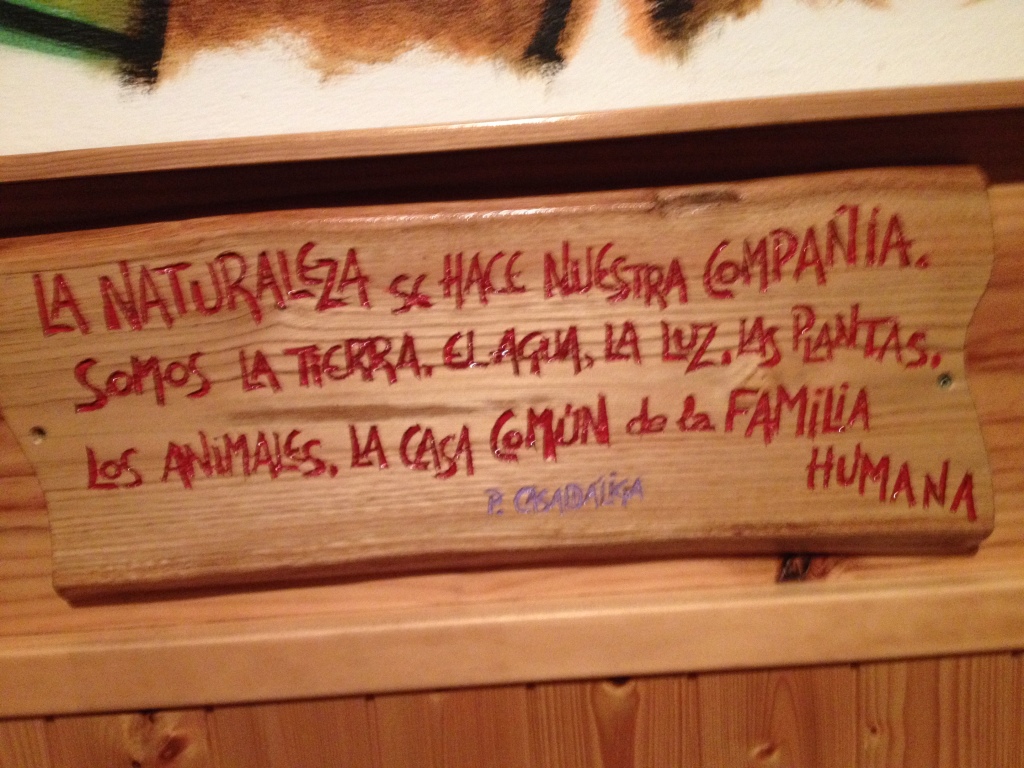 LA NATURALEZA SE HACE NUESTRA COMPAÑÍA.
SOMOS LA TIERRA, EL AGUA, LA LUZ, LAS PLANTAS,
LOS ANIMALES, LA CASA COMÚN de la FAMILIA
HUMANA
P. CASALDÁLIGA